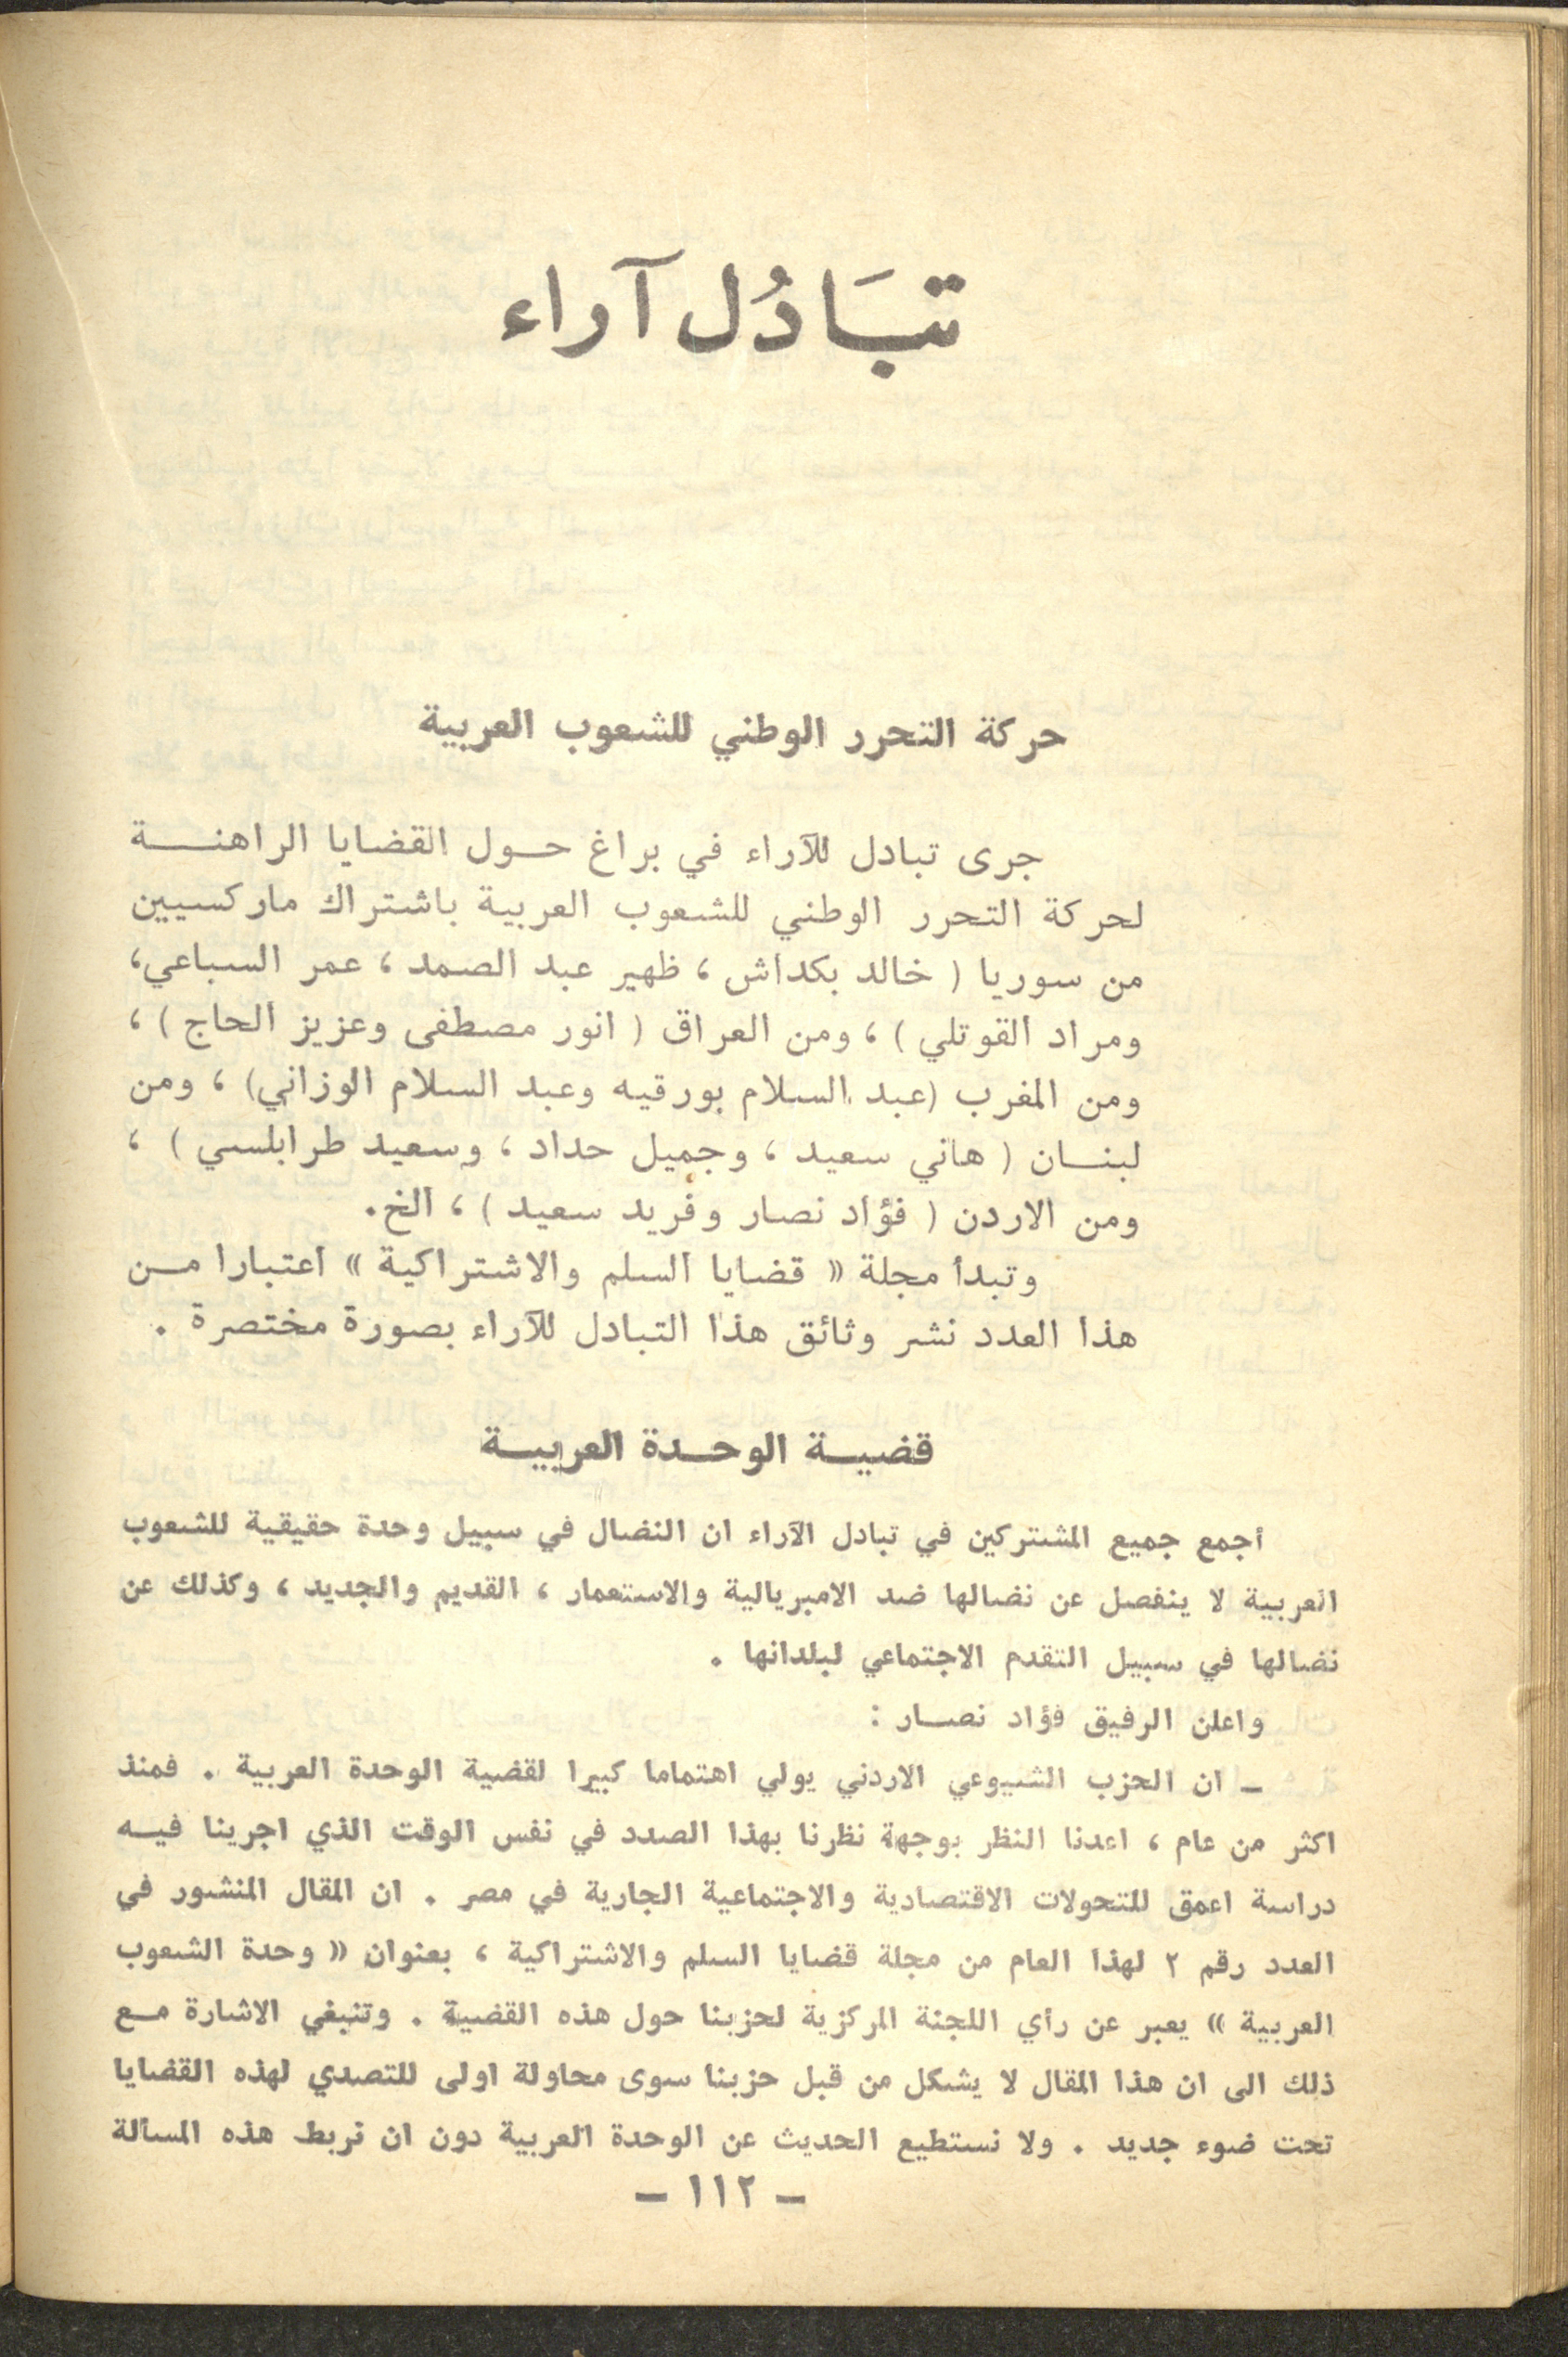 تبَادُل آراء
حركة التحرر الوطني للشعوب العربية
جرى تبادل للآراء في براغ حـول القضايا الراهنـــة
لحركة التحرر الوطني للشعوب العربية باشتراك ماركسيين
من سوريا ( خالد بكداش ، ظهير عبد الصمد ، عمر السباعي،
ومراد القوتلي ) ، ومن العراق ( انور مصطفى وعزيز الحاج ) ،
ومن المغرب (عبد السلام بورقيه وعبد السلام الوزاني) ، ومن
لبنــان ( هاني سعيد ، وجميل حداد ، وسعيد طرابلسي ) ،
ومن الاردن ( فؤاد نصار وفريد سعيد ) ، الخ.
وتبدأ مجلة « قضايا السلم والاشتراكية » اعتبارا مــن
هذا العدد نشر وثائق هذا التبادل للآراء بصورة مختصرة .
قضيــة الوحــدة العربيــة
أجمع جميع المشتركين في تبادل الآراء ان النضال في سبيل وحدة حقيقية للشعوب
العربية لا ينفصل عن نضالها ضد الامبريالية والاستعمار ، القديم والجديد ، وكذلك عن
نضالها في سبيل التقدم الاجتماعي لبلدانها .
واعلن الرفيق فؤاد نصــار :
ــ ان الحزب الشيوعي الاردني يولي اهتماما كبيرا لقضية الوحدة العربية . فمنذ
اكثر من عام ، اعدنا النظر بوجهة نظرنا بهذا الصدد في نفس الوقت الذي اجرينا فيــه
دراسة اعمق للتحولات الاقتصادية والاجتماعية الجارية في مصر . ان المقال المنشور في
العدد رقم ٢ لهذا العام من مجلة قضايا السلم والاشتراكية ، بعنوان « وحدة الشعوب
العربية » يعبر عن رأي اللجنة المركزية لحزبنا حول هذه القضية . وتنبغي الاشارة مــع
ذلك الى ان هذا المقال لا يشكل من قبل حزبنا سوى محاولة اولى للتصدي لهذه القضايا
تحت ضوء جديد . ولا نستطيع الحديث عن الوحدة العربية دون ان نربط هذه المسألة
ــ ١١٢ ــ